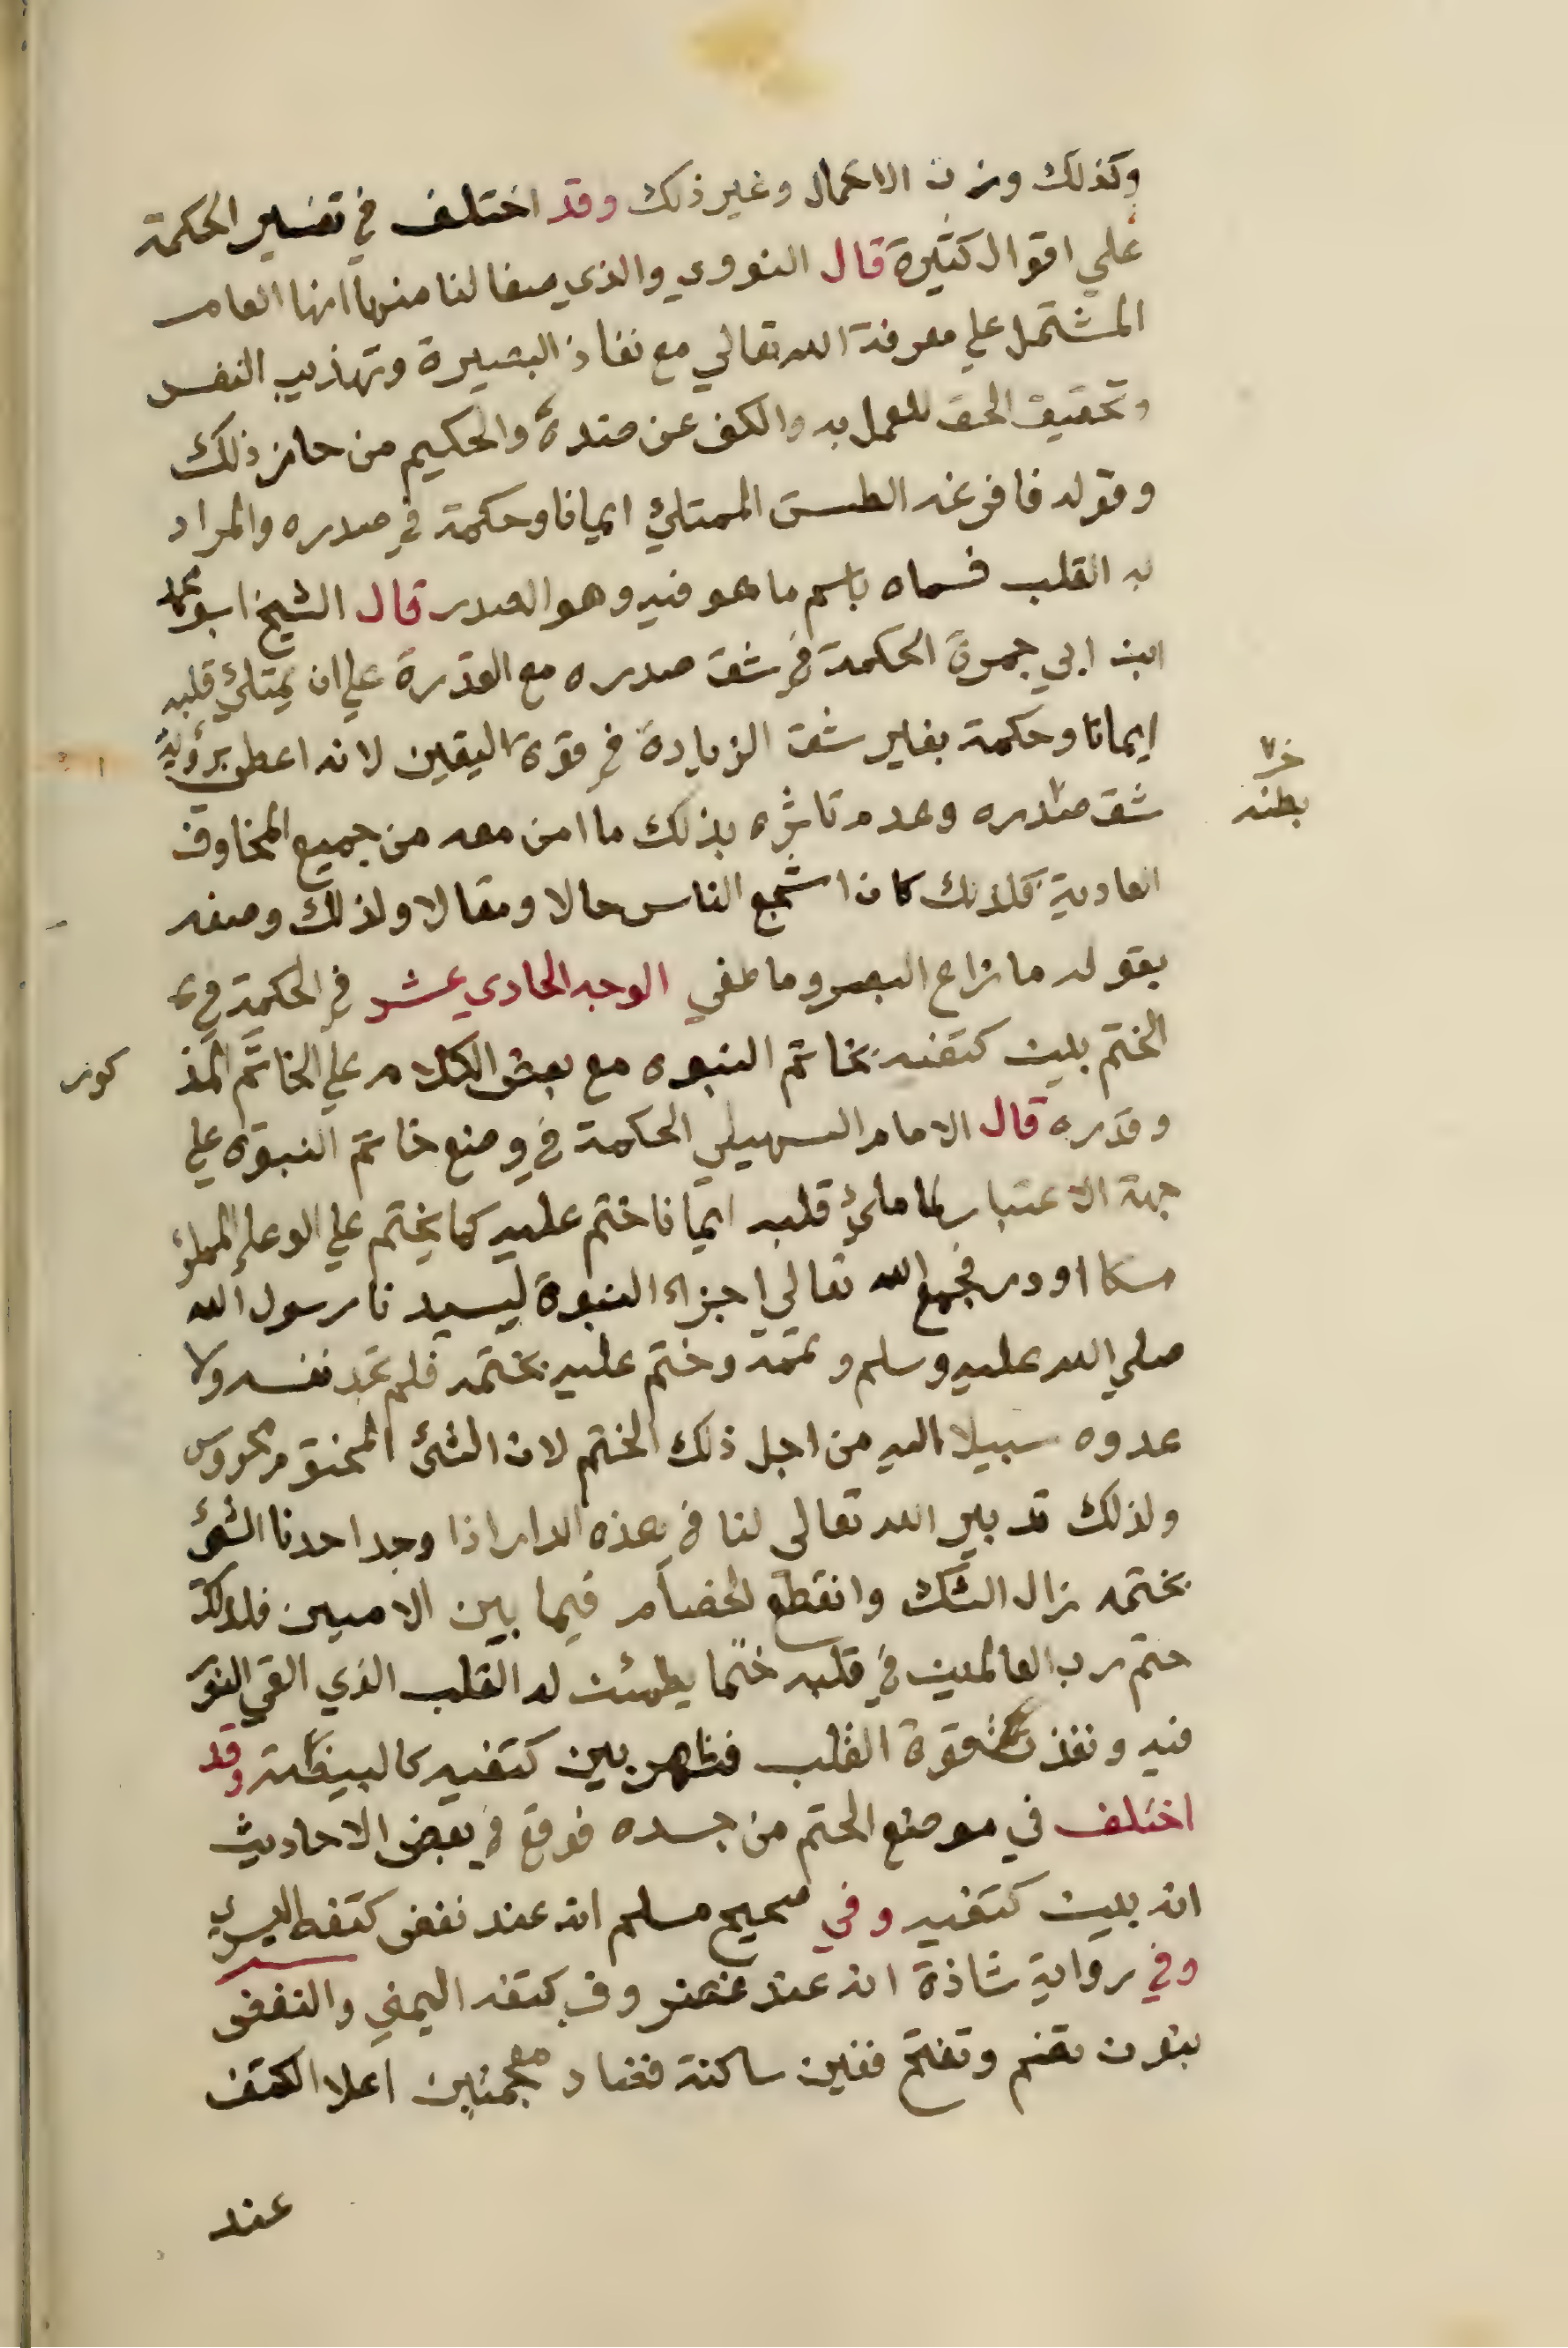 وكذلك وزن الاعمال وغير ذلك وقد اختلف في تفسير الحكمة
علي اقوال كثيرة قال النووي والذي صفا لنا منها انها العلم
المشتمل علي معرفة الله تعالي مع نفاذ البصيرة وتهذيب النفس
وتحقيق الحق للعمل به والكف عن ضده والحكيم من حاز ذلك
وقوله فافرغه الطست الممتلئ ايمانا وحكمة في صدره والمراد
به القلب فسماه باسم ما هو فيه وهو الصدر قال الشيخ ابو محمد
ابن ابي جمرة الحكمة في شق صدره مع القدرة علي ان يمتلئ قلبه
ايمانا وحكمة بغير شق الزيادة في قوة اليقين لانه اعطي برؤية
شق صدره وعدم تاثره بذلك ما امن معه من جميع المخاوف
العادية فلذلك كان اشجع الناس حالا ومقالا ولذلك وصفه
بقوله ما زاغ البصر وما طغي الوجه الحادي عشر في الحكمة في
الختم بين كتفيه بخاتم النبوه مع بعض الكلام علي الخاتم المذ
كور
وقدره قال الامام السهيلي الحكمة في وضع خاتم النبوة علي
جهة الاعتبار لما ملئ قلبه ايمانا ختم عليه كما يختم علي الوعاء المملؤ
مسكا او در فجمع الله تعالي اجزاء النبوة لسيدنا رسول الله
صلي الله عليه وسلم وتممه وختم عليه بختمه فلم تجد نفسه ولا
عدوه سبيلا اليه من اجل ذلك الختم لان الشئ المختوم محروس
ولذلك تدبير الله تعالي لنا في هذه الدار اذا وجد احدنا الشئ
بختمه زال الشك وانقطع الخصام فيما بين الادميين فلذلك
ختم رب العالمين في قلبه ختما يطمئن له القلب الذي القي النور
فيه ونفذت قوة القلب فظهر بين كتفيه كالبيضة وقد
اختلف في موضع الختم من جسده فوقع في بعض الاحاديث
انه بين كتفيه وفي صحيح مسلم انه عند نغض كتفه اليسري
وفي رواية شاذة انه عند غضروف كتفه اليمني والنغض
بنون تضم وتفتح فغين ساكنة فضاد معجمتين اعلا الكتف
عند
خـ
بطنه